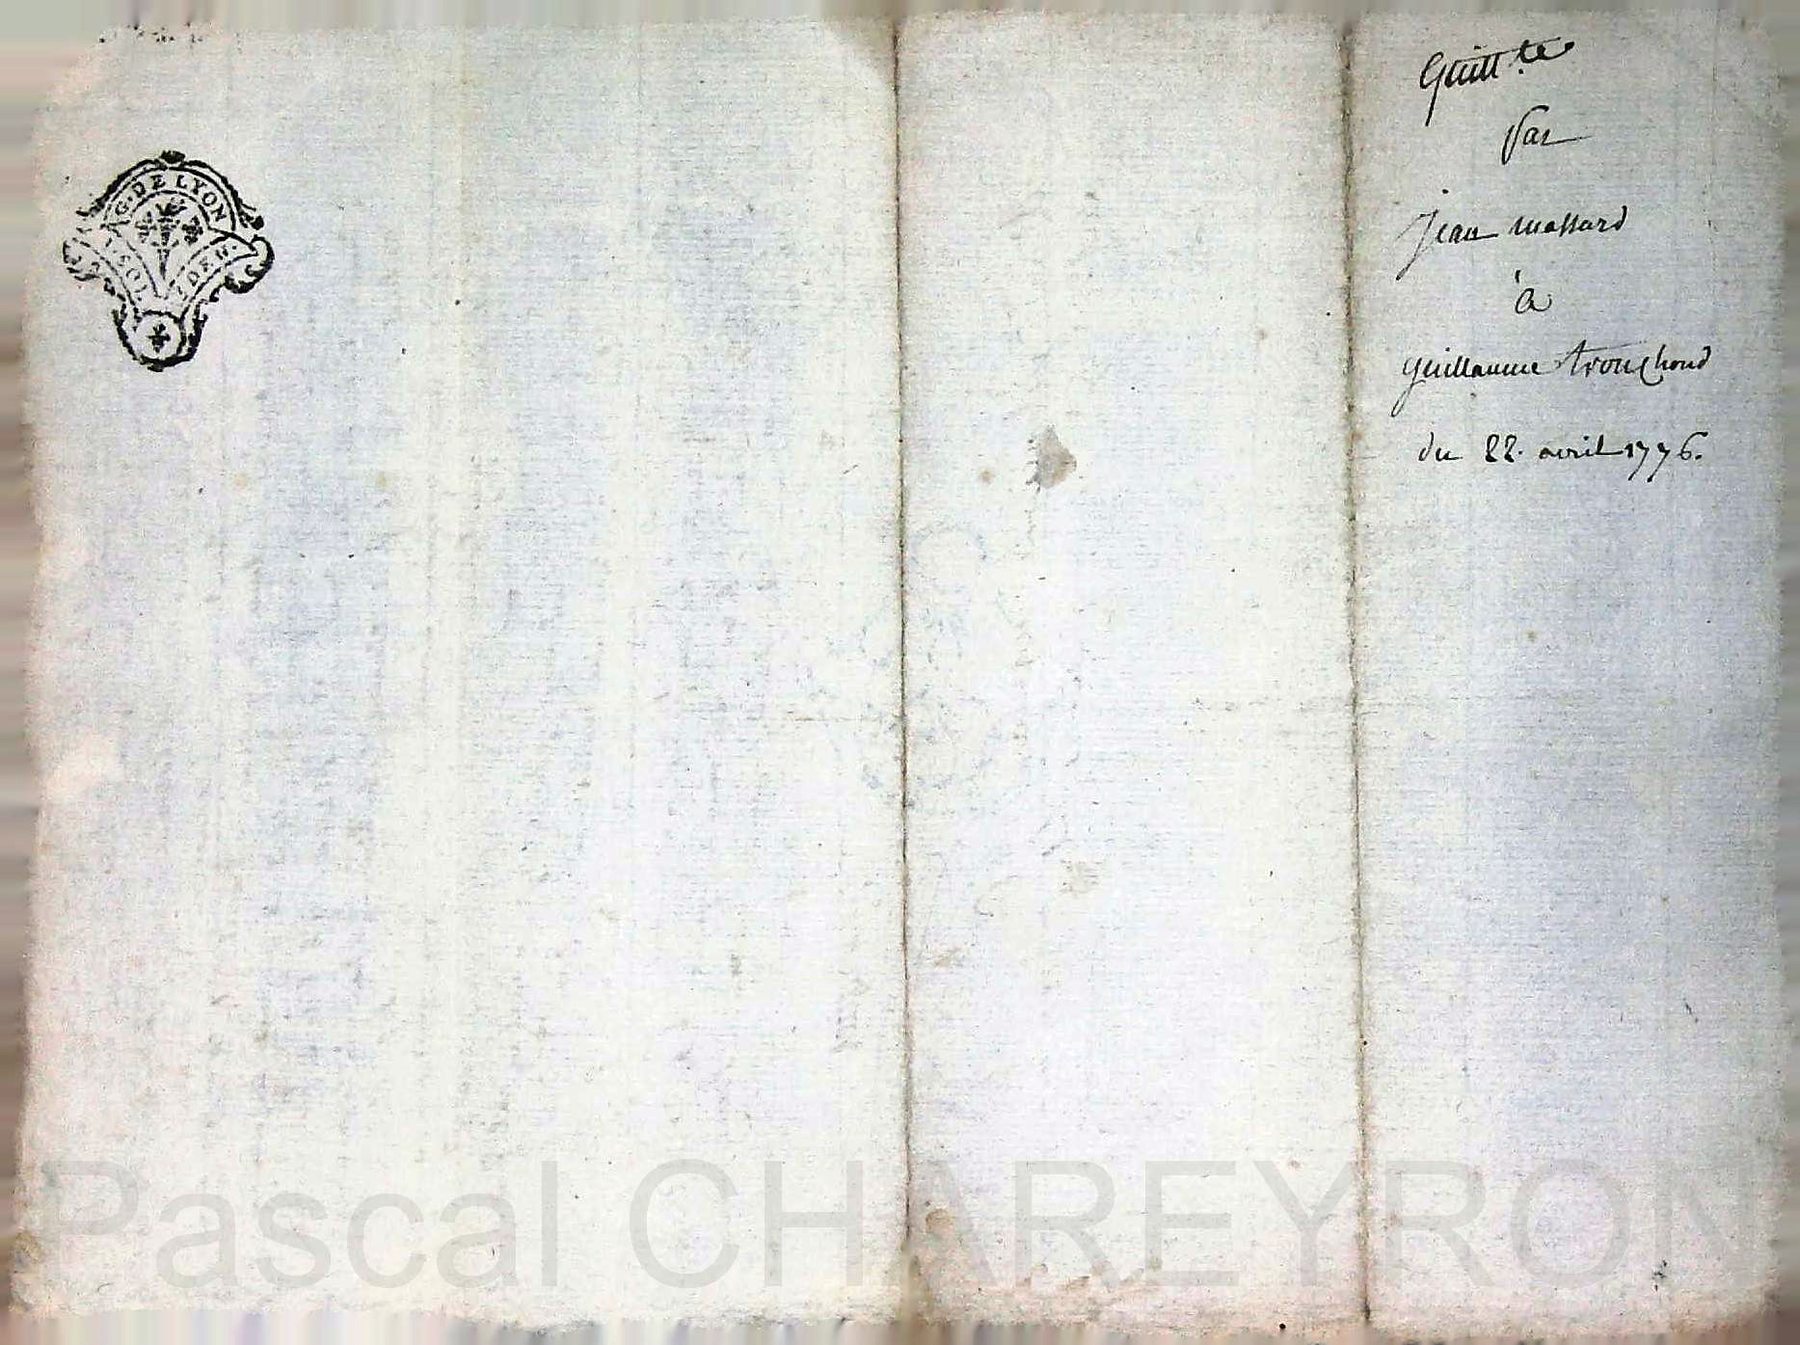 G. DE LYON
1. SOL 2. DEN.
Quitt.ce
par
jean massard
à
guillaume tronchond
du 22. avril 1776.
Pascal CHAREYRON